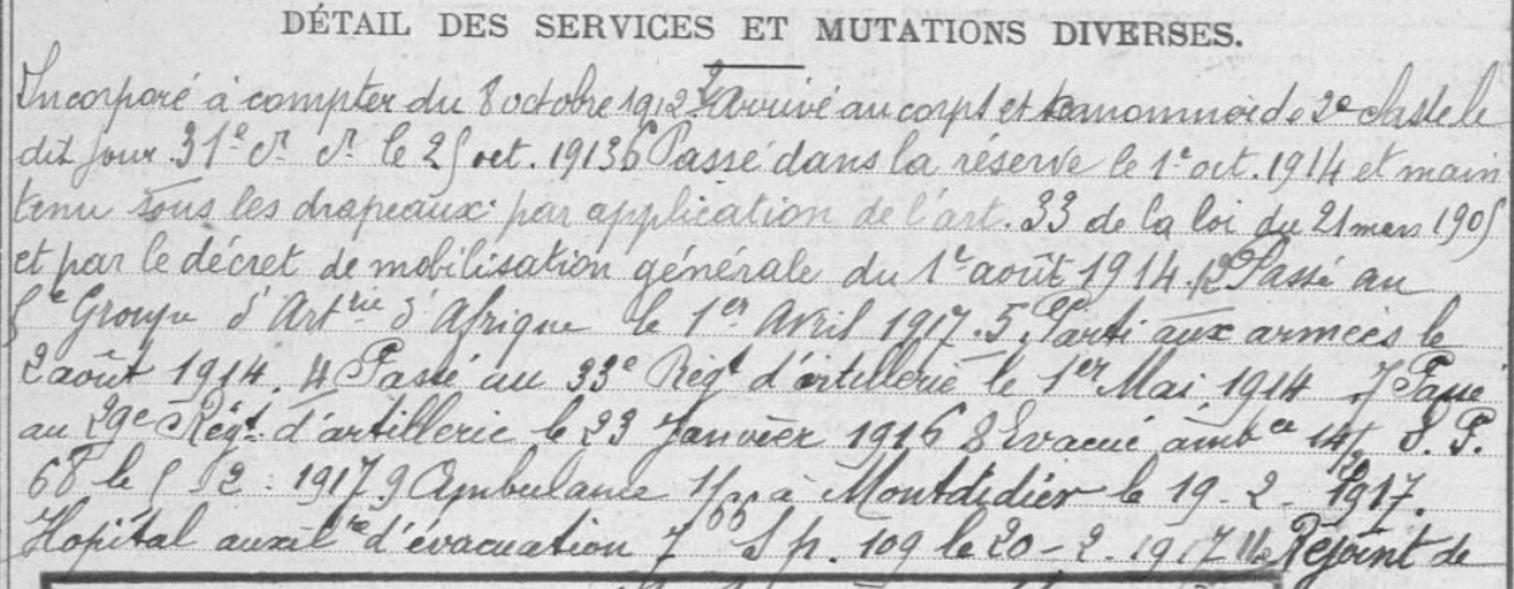 DÉTAIL DES SERVICES ET MUTATIONS DIVERSES.
Incorporé à compter du 8 octobre 1912 2 Arrivé au corps et canonnier de 2e classe le
dit jour. 31e le 25 oct. 1913 6 Passé dans la réserve le 1e oct. 1914 et main
tenu sous les drapeaux par application de l'art. 33 de la loi du 21 mars 1905
et par le décret de mobilisation générale du 1e août 1914. Passé au
5e Groupe d'Artrie d'Afrique le 1er Avril 1917. 5 Parti aux armées le
2 août 1914. 4 Passé au 33e Régt d'artillerie le 1er Mai 1914 7 Passé
au 29e Régt d'artillerie le 23 Janvier 1916 8 Evacué ambce S. P.
68 le 5 2 . 1917 9 Ambulance à Montdidier le 19 - 2 - 1917.
Hopital auxilre d'évacuation S p. 109 le 20 - 2 - 1917 11 Rejoint de